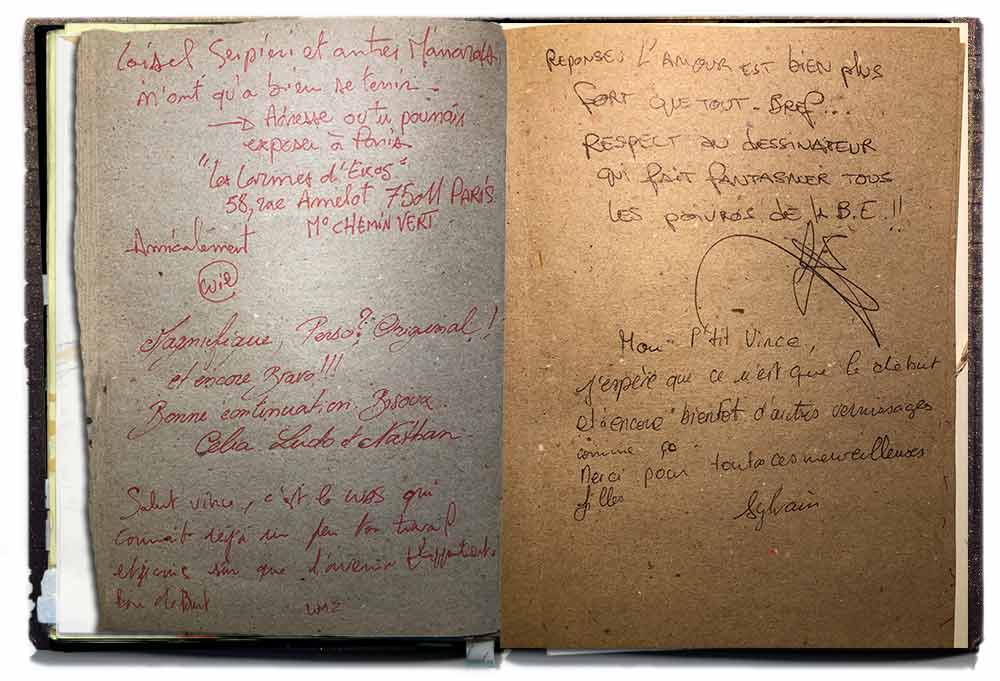 Loisel Serpieri et autres Manaras
n'ont qu'à bien se tenir -
→ Adresse où tu pourrais
exposer à Paris
"Les Larmes d'Eros"
58, rue Amelot 75011 PARIS
M° CHEMIN VERT
Amicalement
Wil
Magnifique, Perso? Original!
et encore Bravo!!!
Bonne continuation.
Celia Ludo et Nathan.
Salut Vince, c'est le
connait déjà un peu ton travail
que l'avenir
REPONSE: L'AMOUR EST bien plus
FORT QUE TOUT. BREF...
RESPECT AU DESSINATEUR
QUI FAIT FANTASMER TOUS
LES DE B.E.!!
Mon P'tit Vince,
J'espère que ce n'est que le début
et encore bientot d'autres vernissages
comme ça
Merci pour toutes ces merveilleuses
filles
Sylvain